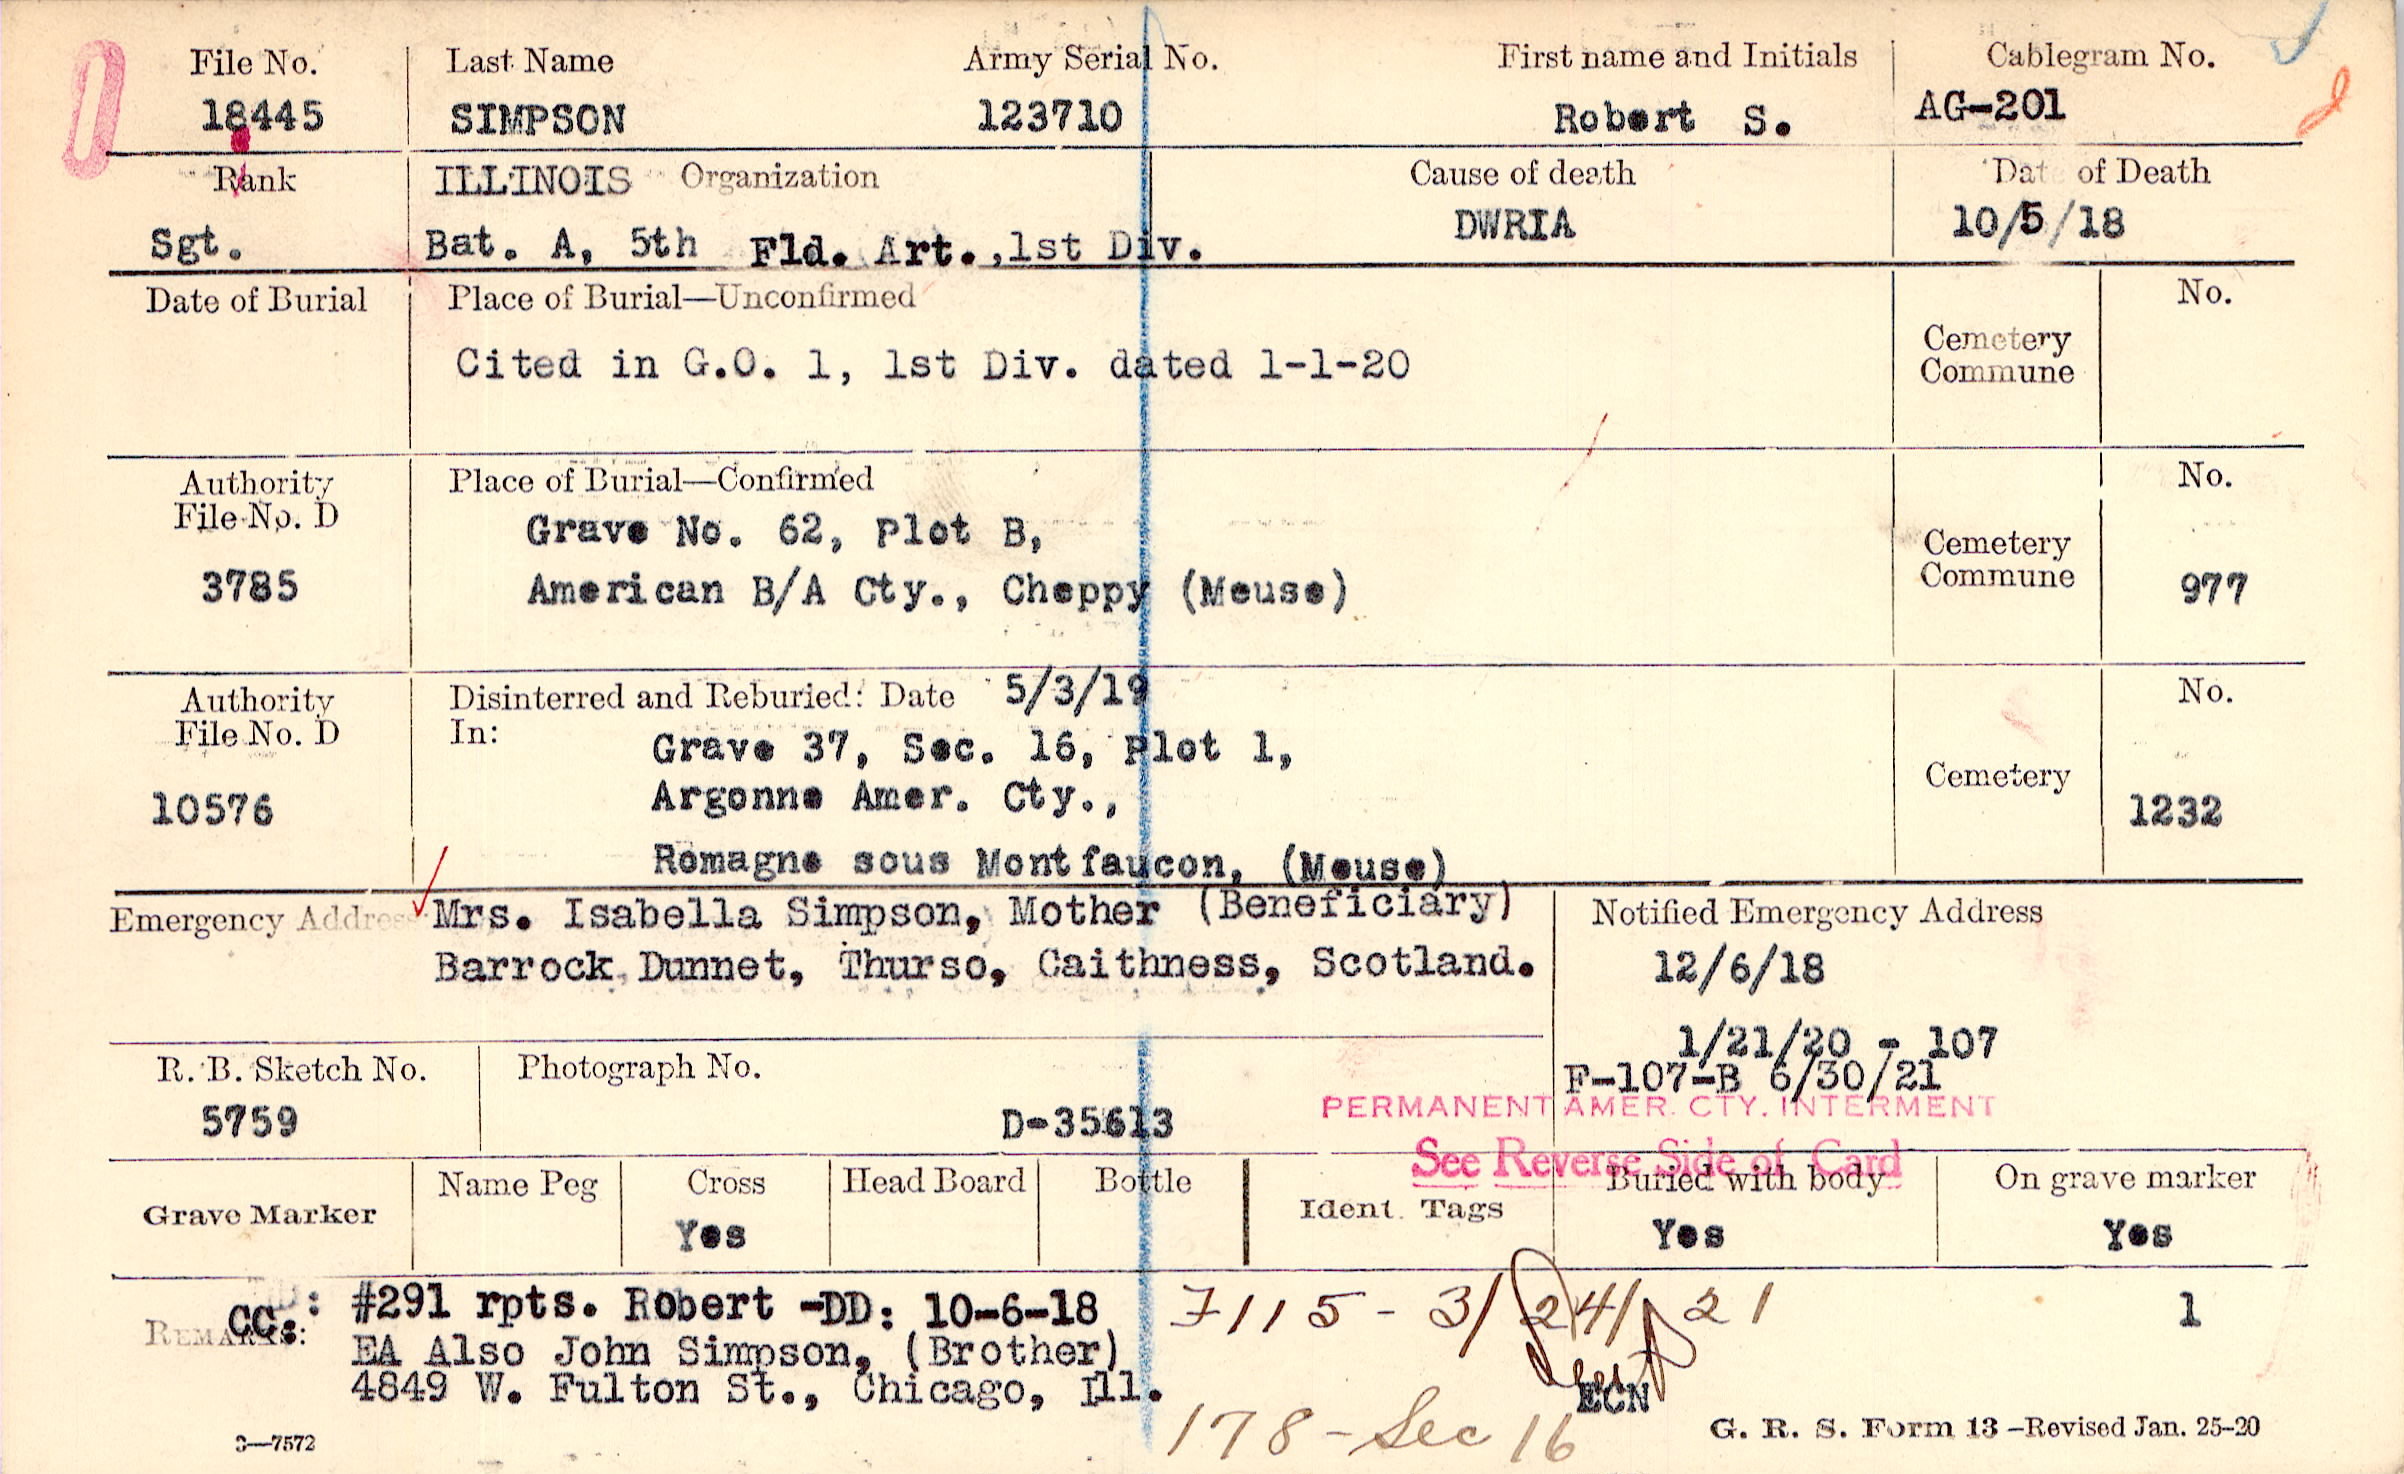 File No. Last Name Army Serial No. First name and Initials Cablegram No.
18445 SIMPSON 123710 Robert S. AG-201
Rank ILLINOIS Organization Cause of death Date of Death
Sgt. Bat. A, 5th Fld. Art.,1st Div. DWRIA 10/5/18
Date of Burial Place of Burial—Unconfirmed No.
Cited in G.O. 1, 1st Div. dated 1-1-20
Cemetery
Commune
Authority Place of Burial—Confirmed No.
File No. D
Grave No. 62, Plot B,
Cemetery
Commune
3785 American B/A Cty., Cheppy (Meuse) 977
Authority Disinterred and Reburied: Date 5/3/19 No.
File No. D In:
Grave 37, Sec. 16, Plot 1,
Cemetery
10576 Argonne Amer. Cty., 1232
Romagne sous Montfaucon, (Meuse)
Emergency Address Mrs. Isabella Simpson, Mother (Beneficiary) Notified Emergency Address
Barrock Dunnet, Thurso, Caithness, Scotland. 12/6/18
1/21/20 - 107
R. B. Sketch No. Photograph No. F-107-B 6/30/21
5759 D-35613 PERMANENT AMER. CTY. INTERMENT
See Reverse Side of Card
Grave Marker Name Peg Cross Head Board Bottle Ident. Tags Buried with body On grave marker
Yes Yes Yes
CC.: #291 rpts. Robert -DD: 10-6-18 7115 - 3/24/21 1
REMARKS: EA Also John Simpson, (Brother)
4849 W. Fulton St., Chicago, Ill. ECN
178 - Sec 16
3—7572 G. R. S. Form 13 —Revised Jan. 25-20